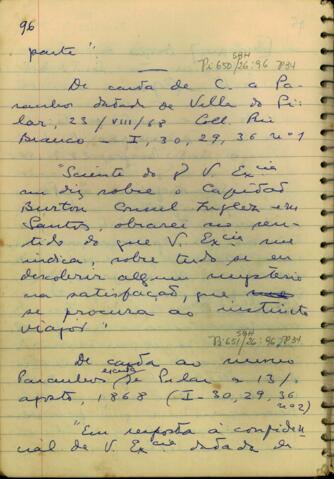 96
parte"
SBH
Pi 650/26:96 P34
De carta de C. a Pa-
ranhos datada de Villa do Pi-
lar, 23/VIII/68 Coll. Rio
Branco - I, 30, 29, 36 nº 1
"Sciente do q V. Excia
me diz sobre o Capitão
Burton Consul Inglez em
Santos, obrarei no sen-
tido do que V. Excia me
indica, sobre tudo se eu
descobrir algum mysterio
na satisfação, que
se procura ao instincto
viajor"
SBH
Pi 651/26:96 P34
De carta ao mesmo
Paranhos escrita de Pilar a 13/
agosto, 1868 (I-30,29,36
nº 2)
"Em resposta à confiden-
cial de V. Excia datada de